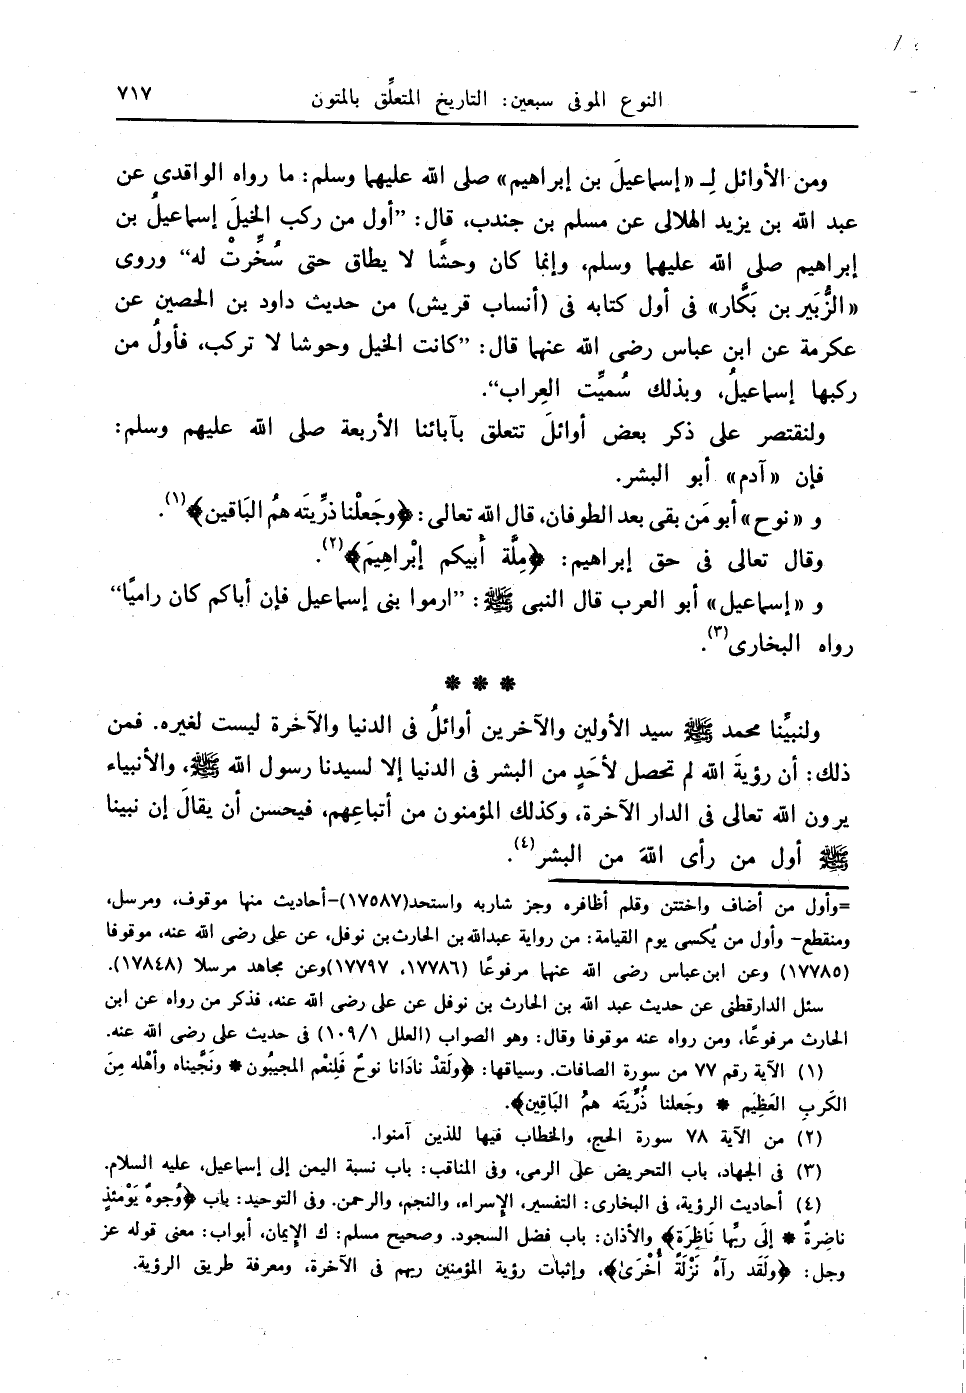 النوع الموفى سبعين: التاريخ المتعلِّق بالمتون ٧١٧
ومن الأوائل لِـ «إسماعيلَ بن إبراهيم» صلى الله عليهما وسلم: ما رواه الواقدى عن
عبد الله بن يزيد الهلالى عن مسلم بن جندب، قال: ”أول من ركب الخيلَ إسماعيلُ بن
إبراهيم صلى الله عليهما وسلم، وإنما كان وحشًا لا يطاق حتى سُخِّرتْ له“ وروى
«الزُّبَير بن بَكَّار» فى أول كتابه فى (أنساب قريش) من حديث داود بن الحصين عن
عكرمة عن ابن عباس رضى الله عنهما قال: ”كانت الخيل وحوشا لا تركب، فأولُ من
ركبها إسماعيلُ، وبذلك سُميِّت العِراب“.
ولنقتصر على ذكر بعض أوائلَ تتعلق بآبائنا الأربعة صلى الله عليهم وسلم:
فإن «آدم» أبو البشر.
و «نوح» أبو مَن بقى بعد الطوفان، قال الله تعالى: ﴿وجَعلْنا ذرِّيتَه همُ البَاقين﴾(١).
وقال تعالى فى حق إبراهيم: ﴿مِلَّة أبيكم إبْراهِيمَ﴾(٢).
و «إسماعيل» أبو العرب قال النبى ﷺ: ”ارموا بنى إسماعيل فإن أباكم كان راميًا“
رواه البخارى(٣).
* * *
ولنبيِّنا محمد ﷺ سيد الأولين والآخرين أوائلُ فى الدنيا والآخرة ليست لغيره. فمن
ذلك: أن رؤيةَ الله لم تحصل لأحَدٍ من البشر فى الدنيا إلا لسيدنا رسول الله ﷺ، والأنبياء
يرون الله تعالى فى الدار الآخرة، وكذلك المؤمنون من أتباعِهم، فيحسن أن يقالَ إن نبينا
ﷺ أول من رأى اللهَ من البشر(٤).
=وأول من أضاف واختتن وقلم أظافره وجز شاربه واستحد(١٧٥٨٧)–أحاديث منها موقوف، ومرسل،
ومنقطع– وأول من يُكسى يوم القيامة: من رواية عبدالله بن الحارث بن نوفل، عن على رضى الله عنه، موقوفا
(١٧٧٨٥) وعن ابن عباس رضى الله عنهما مرفوعًا (١٧٧٨٦، ١٧٧٩٧)وعن مجاهد مرسلا (١٧٨٤٨).
سئل الدارقطنى عن حديث عبد الله بن الحارث بن نوفل عن على رضى الله عنه، فذكر من رواه عن ابن
الحارث مرفوعًا، ومن رواه عنه موقوفا وقال: وهو الصواب (العلل ١٠٩/١) فى حديث على رضى الله عنه.
(١) الآية رقم ٧٧ من سورة الصافات. وسياقها: ﴿ولَقدْ نادَانا نوحٌ فَلِنعْم المجيبُون * ونَجَّيناه وأهْله مِنَ
الكَربِ العَظِيم * وجَعلنا ذُرِّيتَه همُ البَاقِين﴾.
(٢) من الآية ٧٨ سورة الحج، والخطاب فيها للذين آمنوا.
(٣) فى الجهاد، باب التحريض على الرمى، وفى المناقب: باب نسبة اليمن إلى إسماعيل، عليه السلام.
(٤) أحاديث الرؤية، فى البخارى: التفسير، الإسراء، والنجم، والرحمن. وفى التوحيد: باب ﴿وُجوهٌ يَوْمئذٍ
ناضِرةٌ * إلَى ربِّها نَاظِرَة﴾ والأذان: باب فضل السجود. وصحيح مسلم: ك الإيمان، أبواب: معنى قوله عز
وجل: ﴿ولَقَد رآهُ نَزْلَةً أُخْرَىٰ﴾، وإثبات رؤية المؤمنين ربهم فى الآخرة، ومعرفة طريق الرؤية.